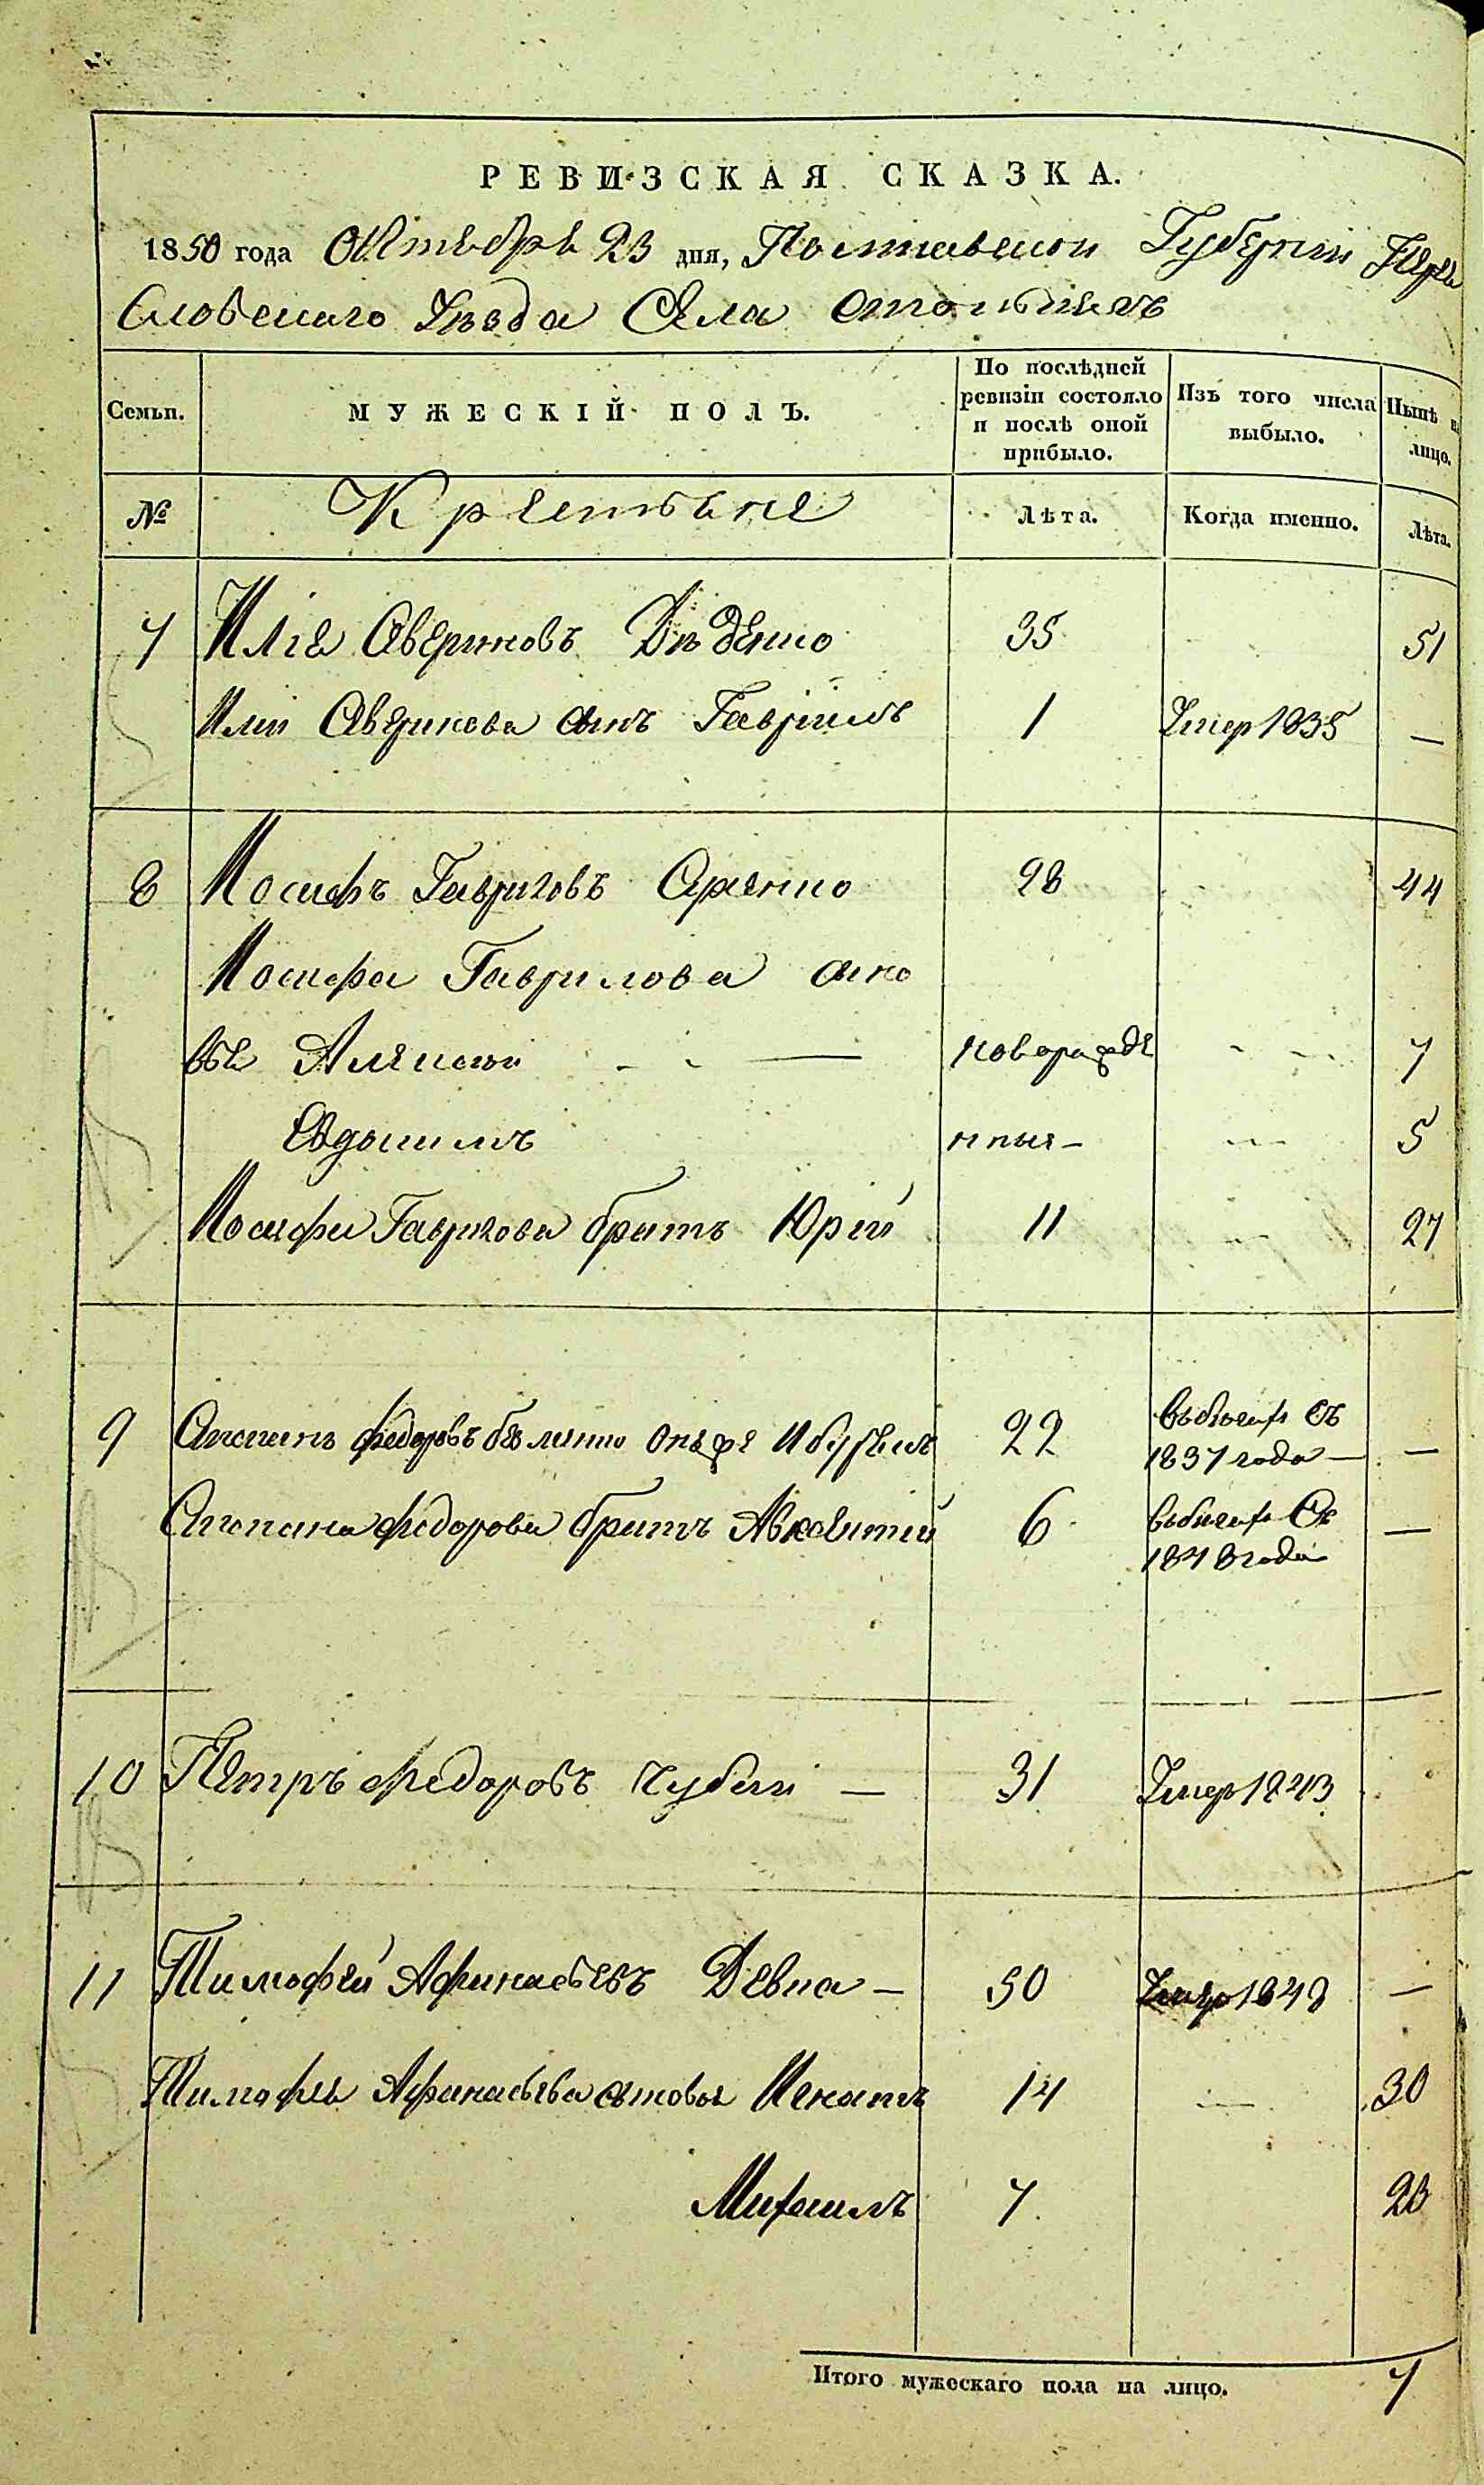 РЕВИЗСКАЯ СКАЗКА.
1850 года Октября 23 дня, Полтавской Губернии Пере
яславского Уезда Села
Семьи.
МУЖЕСКІЙ ПОЛЪ.
По послѣдней ревизіи состояло и послѣ оной прибыло.
Изъ того числа выбыло.
Нынѣ на лицо.
№
Крестьяне
Лѣта.
Когда именно.
Лѣта.
7 Илія Аверкіовъ Дѣденко 35 51
Иліи Аверкіова сынъ Гавріилъ 1 Умер 1835 —
8 Иосифъ Гавриловъ 28 44
Иосифа Гаврилова сыно
вья Алексѣй — новорожде 7
Евдокимъ нные — 5
Иосифа Гаврилова братъ Юрій 11 27
9 Степанъ Федоровъ 22 въ бегах съ
1837 года — —
Степана Федорова братъ 6 въ бегах Съ
1848 года —
10 Петръ Федоровъ — 31 Умер 1843
11 Тимофей Афанасьевъ — 50 Умер 1848 —
Тимофея Афанасьева сыновья Игнатъ 14 — 30
Михаилъ 7 23
Итого мужескаго пола на лицо. 7